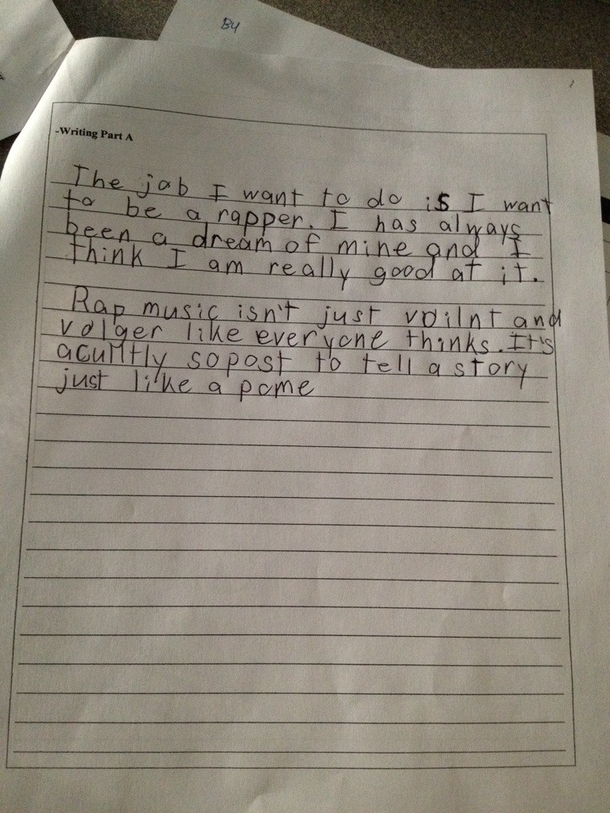 B4
-Writing Part A
The job I want to do is I want
to be a rapper. I has always
been a dream of mine and I
think I am really good at it.
Rap music isn't just voilnt and
volger like everyone thinks. It's
aculltly sopost to tell a story
just like a pome